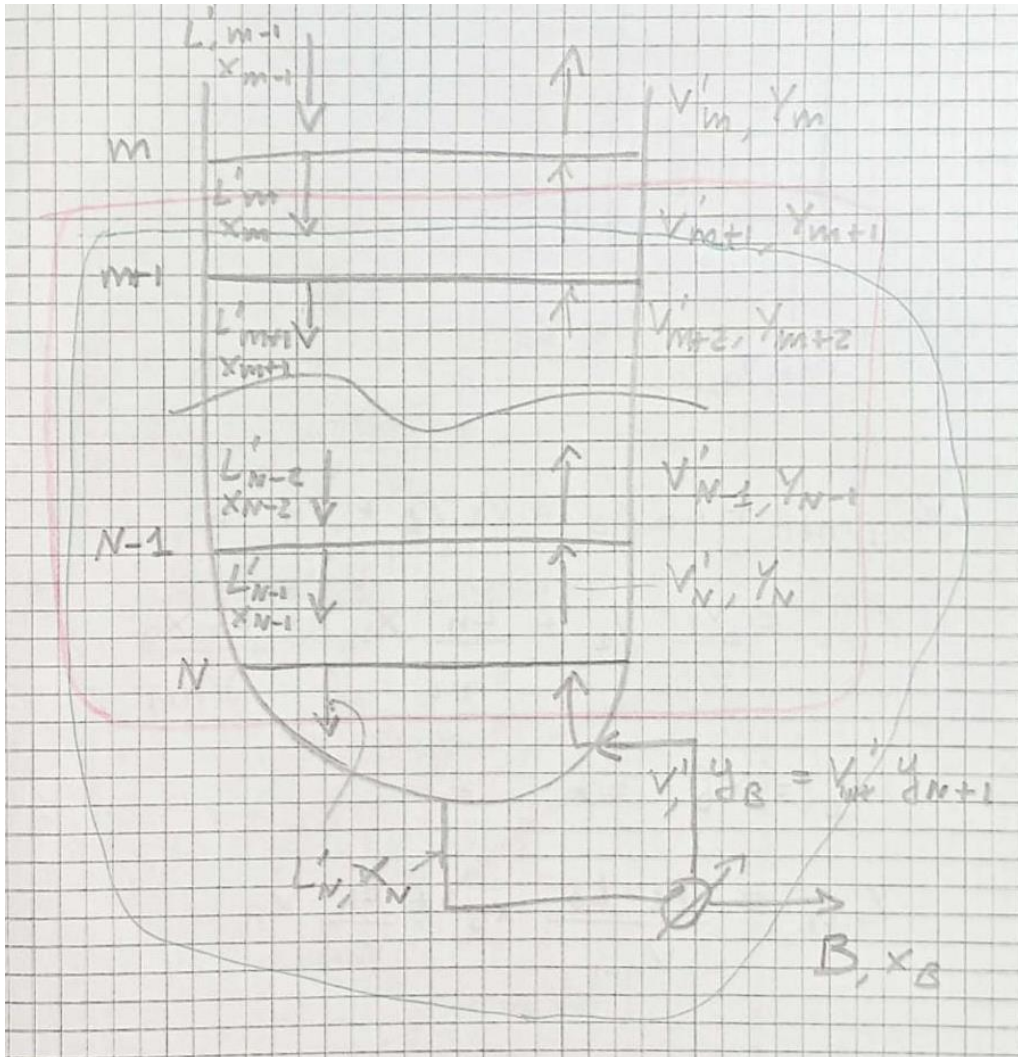 L', m-1
x m-1
V'm, Ym
m
L'm
xm
V'm+1, Ym+1
m+1
L'm+1
xm+1
V'm+2, Ym+2
L'N-2
xN-2
V'N-1, YN-1
N-1
L'N-1
xN-1
V'N, YN
N
V', yB = V' yN+1
L'N, xN
B, xB